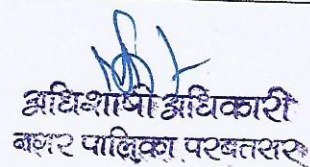 अधिशाषी अधिकारी
नगर पालिका परबतसर